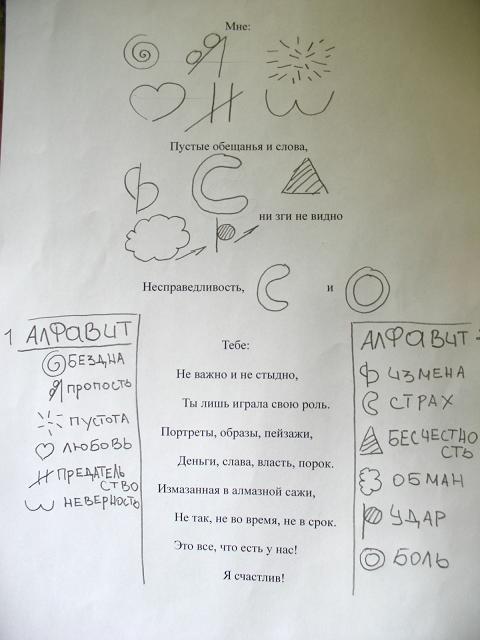 Мне:
Пустые обещанья и слова,
ни зги не видно
Несправедливость, и
1 АЛФАВИТ
БЕЗДНА
ПРОПОСТЬ
ПУСТОТА
ЛЮБОВЬ
ПРЕДАТЕЛЬ
СТВО
НЕВЕРНОСТЬ
Тебе:
Не важно и не стыдно,
Ты лишь играла свою роль.
Портреты, образы, пейзажи,
Деньги, слава, власть, порок.
Измазанная в алмазной сажи,
Не так, не во время, не в срок.
Это все, что есть у нас!
Я счастлив!
АЛФАВИТ
ИЗМЕНА
СТРАХ
БЕСЧЕСТНО
СТЬ
ОБМАН
УДАР
БОЛЬ